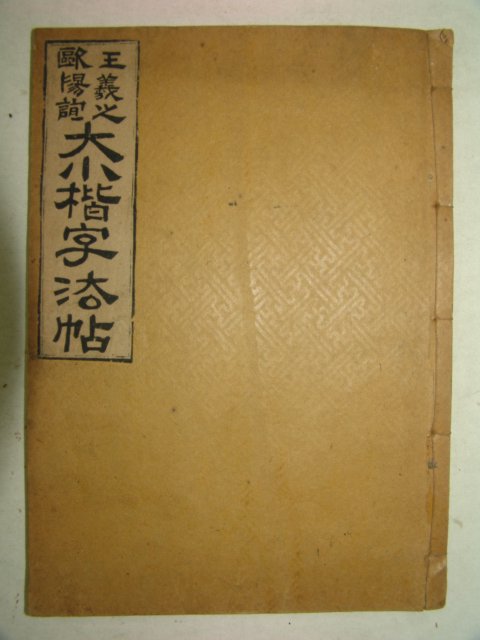 王羲之
歐陽詢
大小楷字法帖